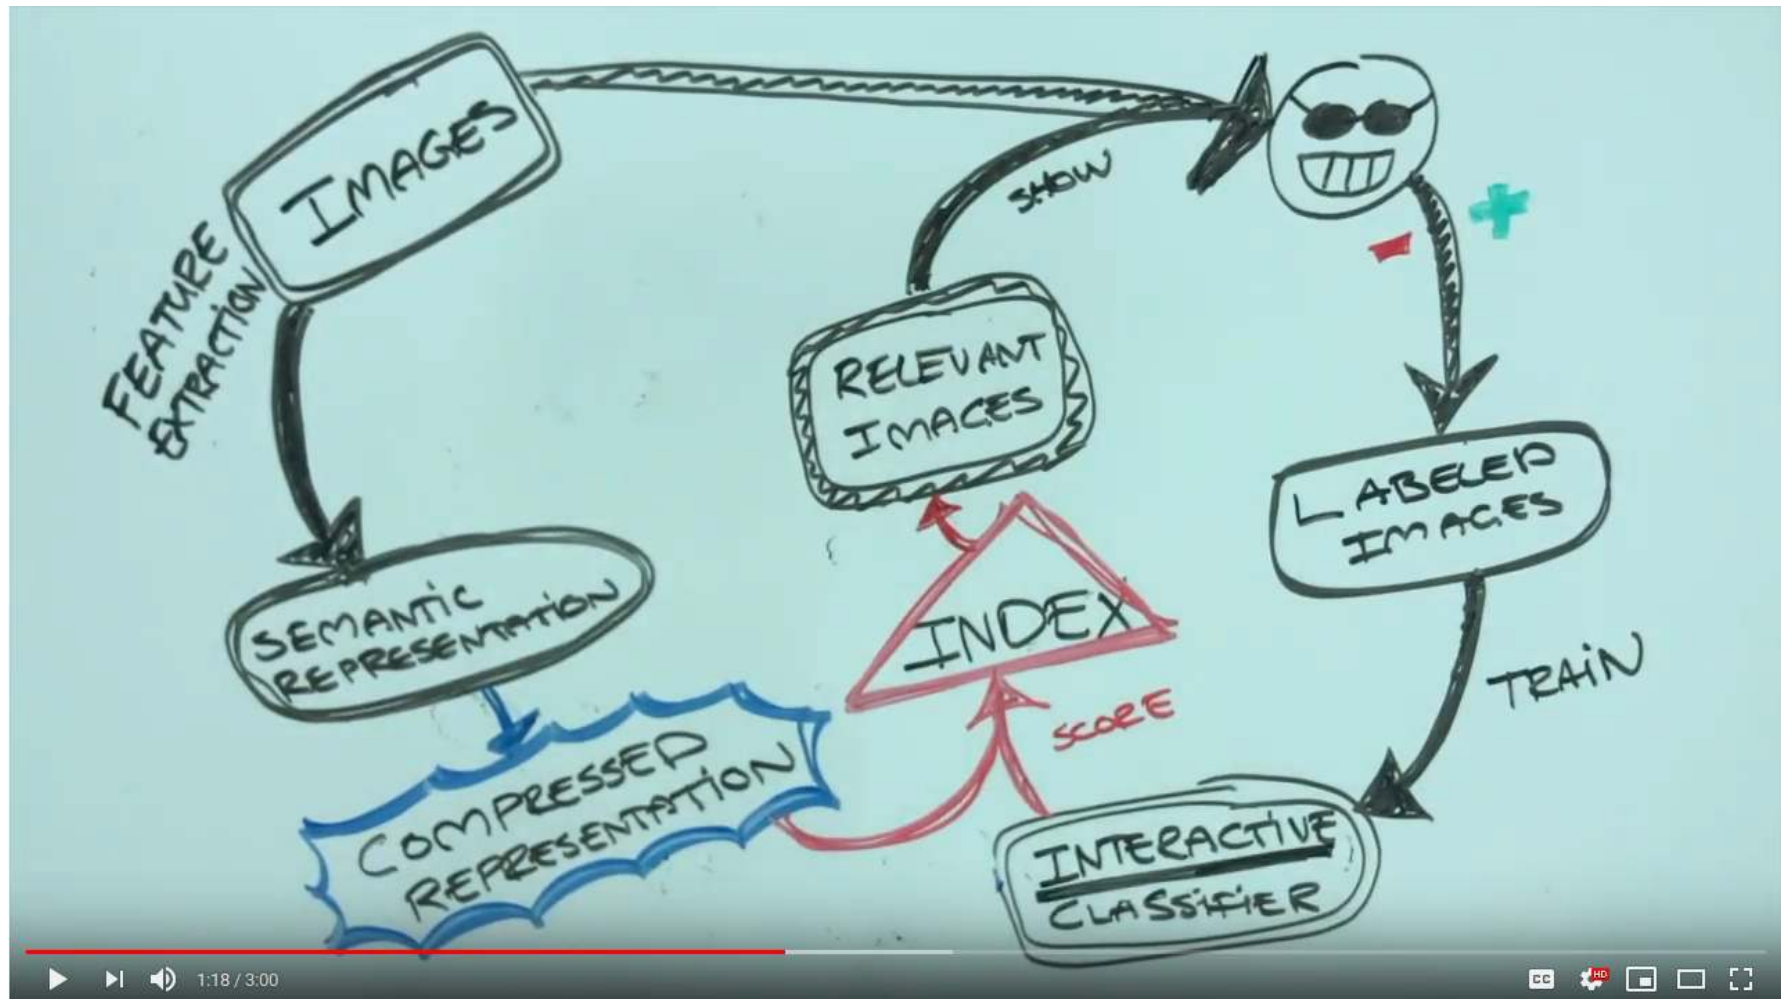 IMAGES
FEATURE
EXTRACTION
SHOW
+
-
RELEVANT
IMAGES
LABELED
IMAGES
SEMANTIC
REPRESENTATION
INDEX
TRAIN
SCORE
COMPRESSED
REPRESENTATION
INTERACTIVE
CLASSIFIER
1:18 / 3:00
CC
HD